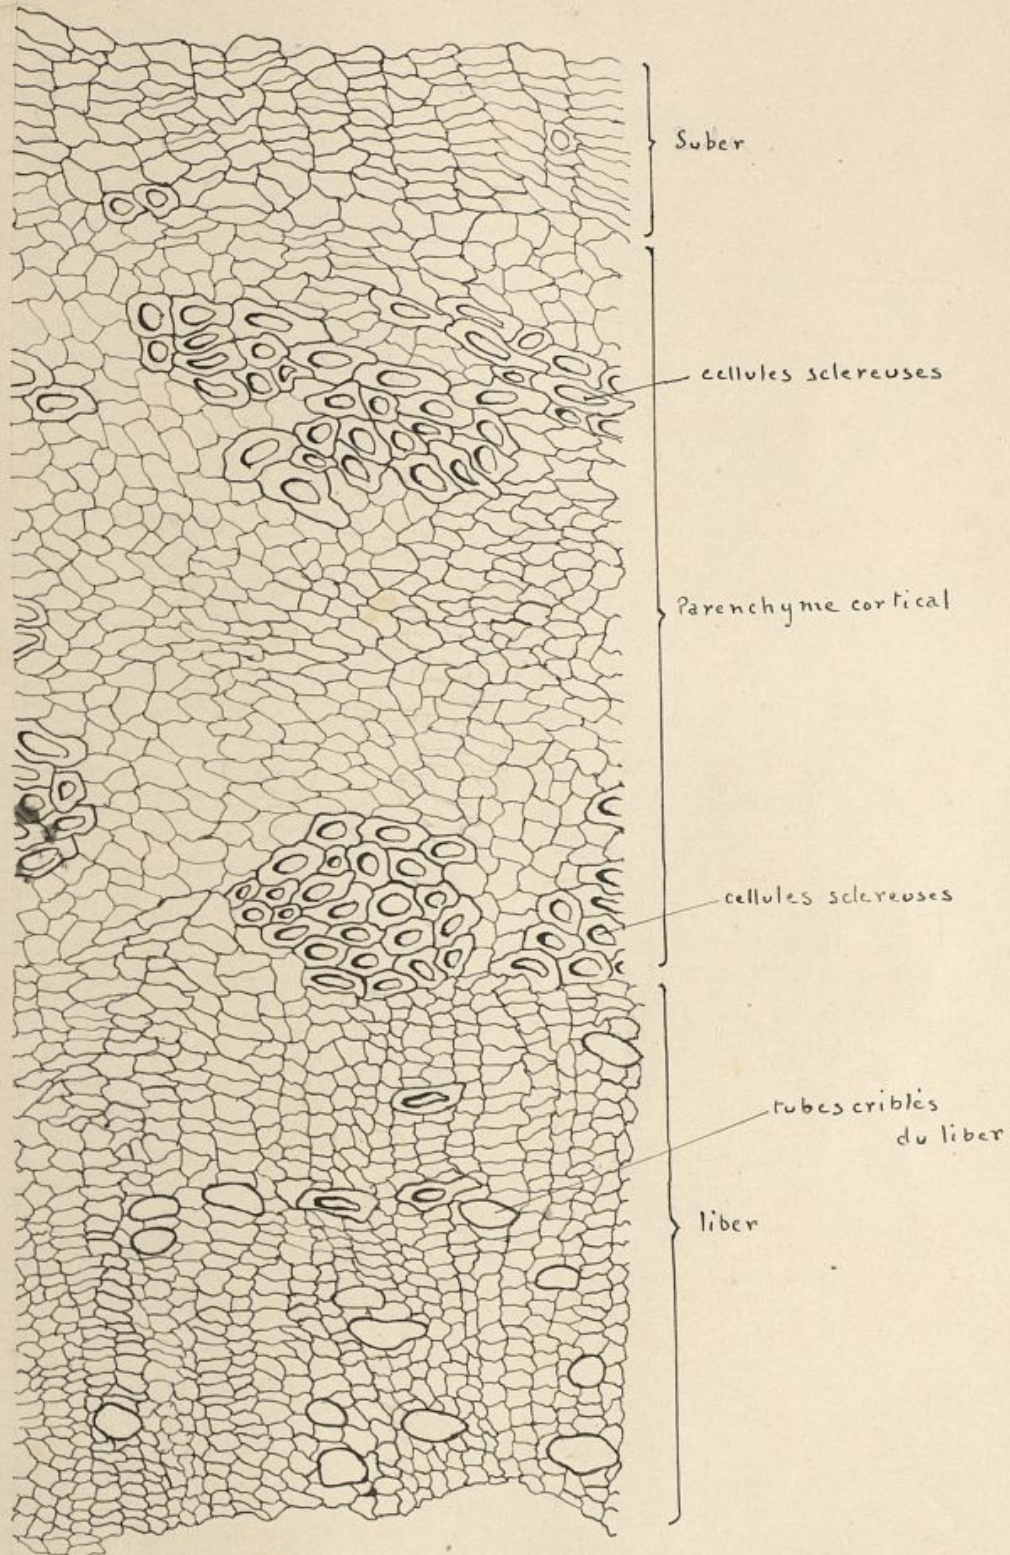 Suber
cellules sclereuses
Parenchyme cortical
cellules sclereuses
tubes criblés
du liber
liber